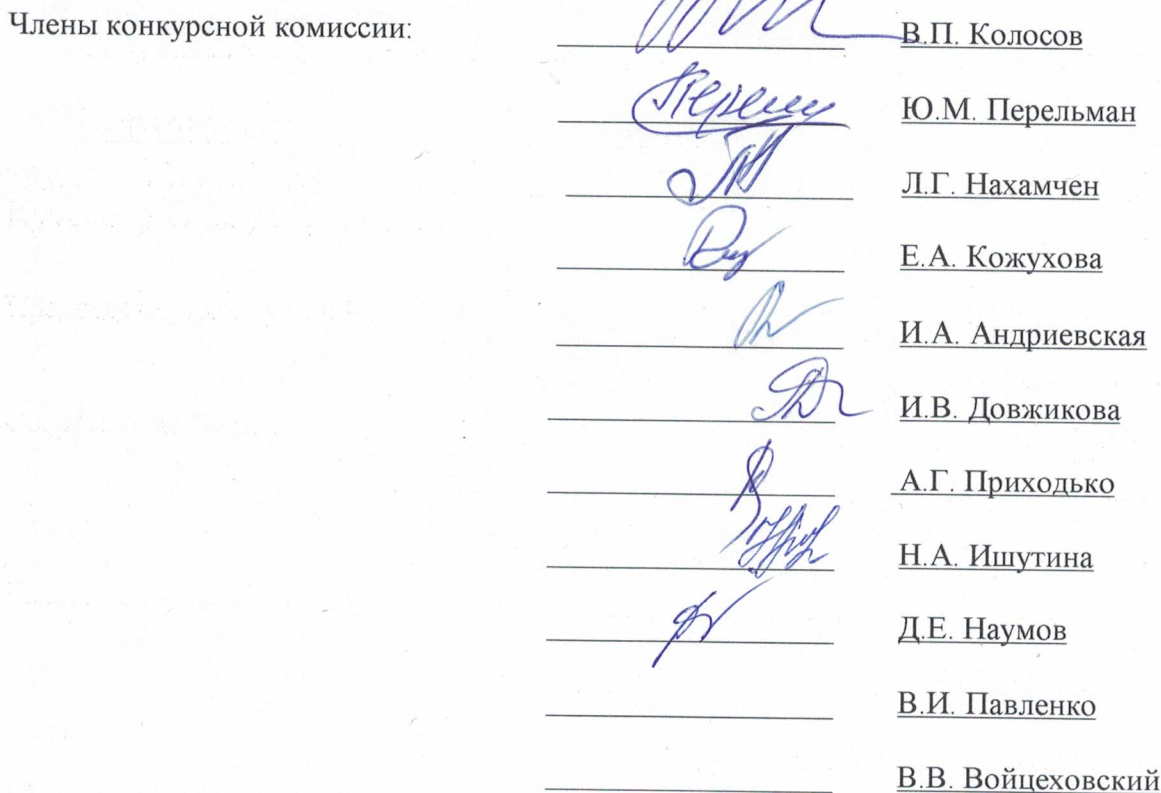 Члены конкурсной комиссии:
В.П. Колосов
Ю.М. Перельман
Л.Г. Нахамчен
Е.А. Кожухова
И.А. Андриевская
И.В. Довжикова
А.Г. Приходько
Н.А. Ишутина
Д.Е. Наумов
В.И. Павленко
В.В. Войцеховский